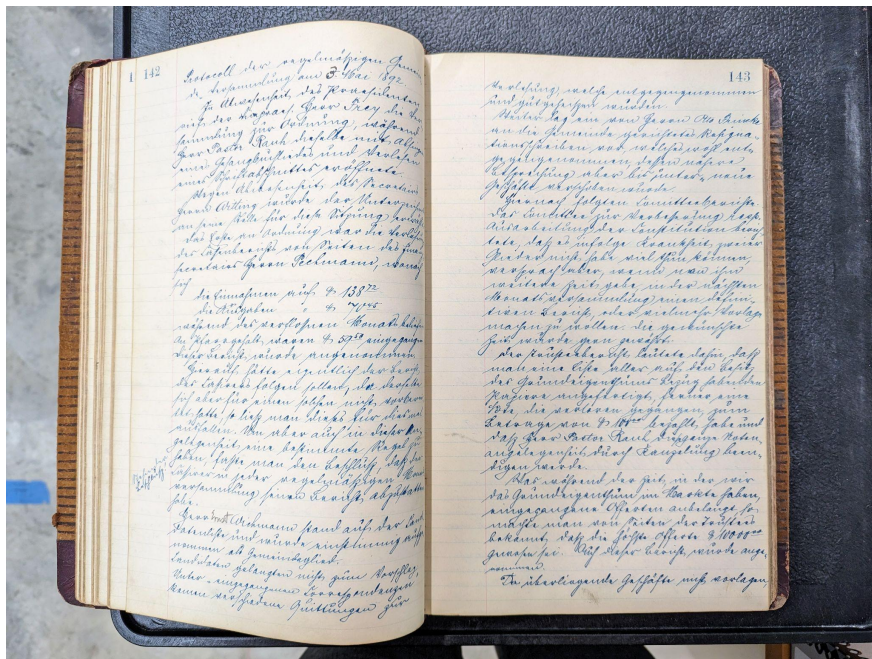 142
Protocoll der regelmäßigen Gemein
de Versammlung am 3 Mai 1892
In Abwesenheit des Praesidenten
rief der Vizepraes. Herr Frey die Ver
sammlung zur Ordnung, während
Herr Pastor Rank dieselbe mit Absingen
eines Gesangbuchliedes und Verlesen
eines Schriftabschnittes eröffnete
Wegen Abwesenheit des Secretairs
Herrn Witting wurde der Unterzeichn
an seine Stelle für diese Sitzung erwählt
Das Erste an Ordnung war die Verlesung
des Cassenberichts von Seiten des Finanz
secretairs Herrn Beckmann, wonach
sich
die Einnahmen auf $ 138 72
die Ausgaben " $ 70 45
während des verflossenen Monats beliefen
An Pfarrgehalt waren $ 59 50 eingegangen
Dieser Bericht wurde angenommen.
Hierauf hätte eigentlich der Bericht
des Cassirers folgen sollen, da derselbe
sich aber für einen solchen nicht vorberei
tet hatte, so ließ man dieses für diesmal
ausfallen. Um aber auch in dieser An
gelegenheit eine bestimmte Regel zu
haben, faßte man den Beschluß, daß der
Cassirer in jeder regelmäßigen Monats
versammlung seinen Bericht abzustatten
habe.
Herr Wichmann stand auf der Can
datenliste und wurde einstimmig aufge
nommen als Gemeindeglied.
Candidaten gelangten nicht zum Vorschlag.
Unter eingegangenen Correspondenzen
kamen verschiedene Quittungen zur
143
Verlesung, welche entgegengenommen
und gutgeheißen wurden.
Weiter lag ein von Herrn Otto
an die Gemeinde gerichtetes Resigna-
tionsschreiben vor, welches wohl ent-
gegengenommen, dessen nähere
Besprechung aber bis unter neue
Geschäfte verschoben wurde.
Hiernach folgten Comitteeberichte.
Das Comittee zur Verbesserung resp.
Ausarbeitung der Constitution berich
tete, daß es infolge Krankheit zweier
Glieder nicht habe viel thun können,
versprach aber, wenn man ihm
weitere Zeit gebe, in der nächsten
Monatsversammlung einen defini-
tiven Bericht, oder vielmehr Vorlage
machen zu wollen. Die gewünschte
Zeit wurde gern gewährt.
Der Trusteebericht lautete dahin, daß
man eine Liste aller auf den Besitz
des Grundeigenthums Bezug habenden
Papiere angefertigt, ferner eine
Note, die verloren gegangen, zum
Betrage von $ bezahlt habe und
daß Herr Pastor Rank diesseitige Noten-
angelegenheit durch Canzelung been-
digen werde.
Was während der Zeit, in der wir
das Grundeigenthum im Markte haben,
eingegangene Offerten anbelangt, so
machte man von Seiten der Trustees
bekannt, daß die höchste Offerte $ 10000 00
gewesen sei. Auch dieser Bericht wurde ange-
nommen.
Da überliegende Geschäfte nicht vorlagen